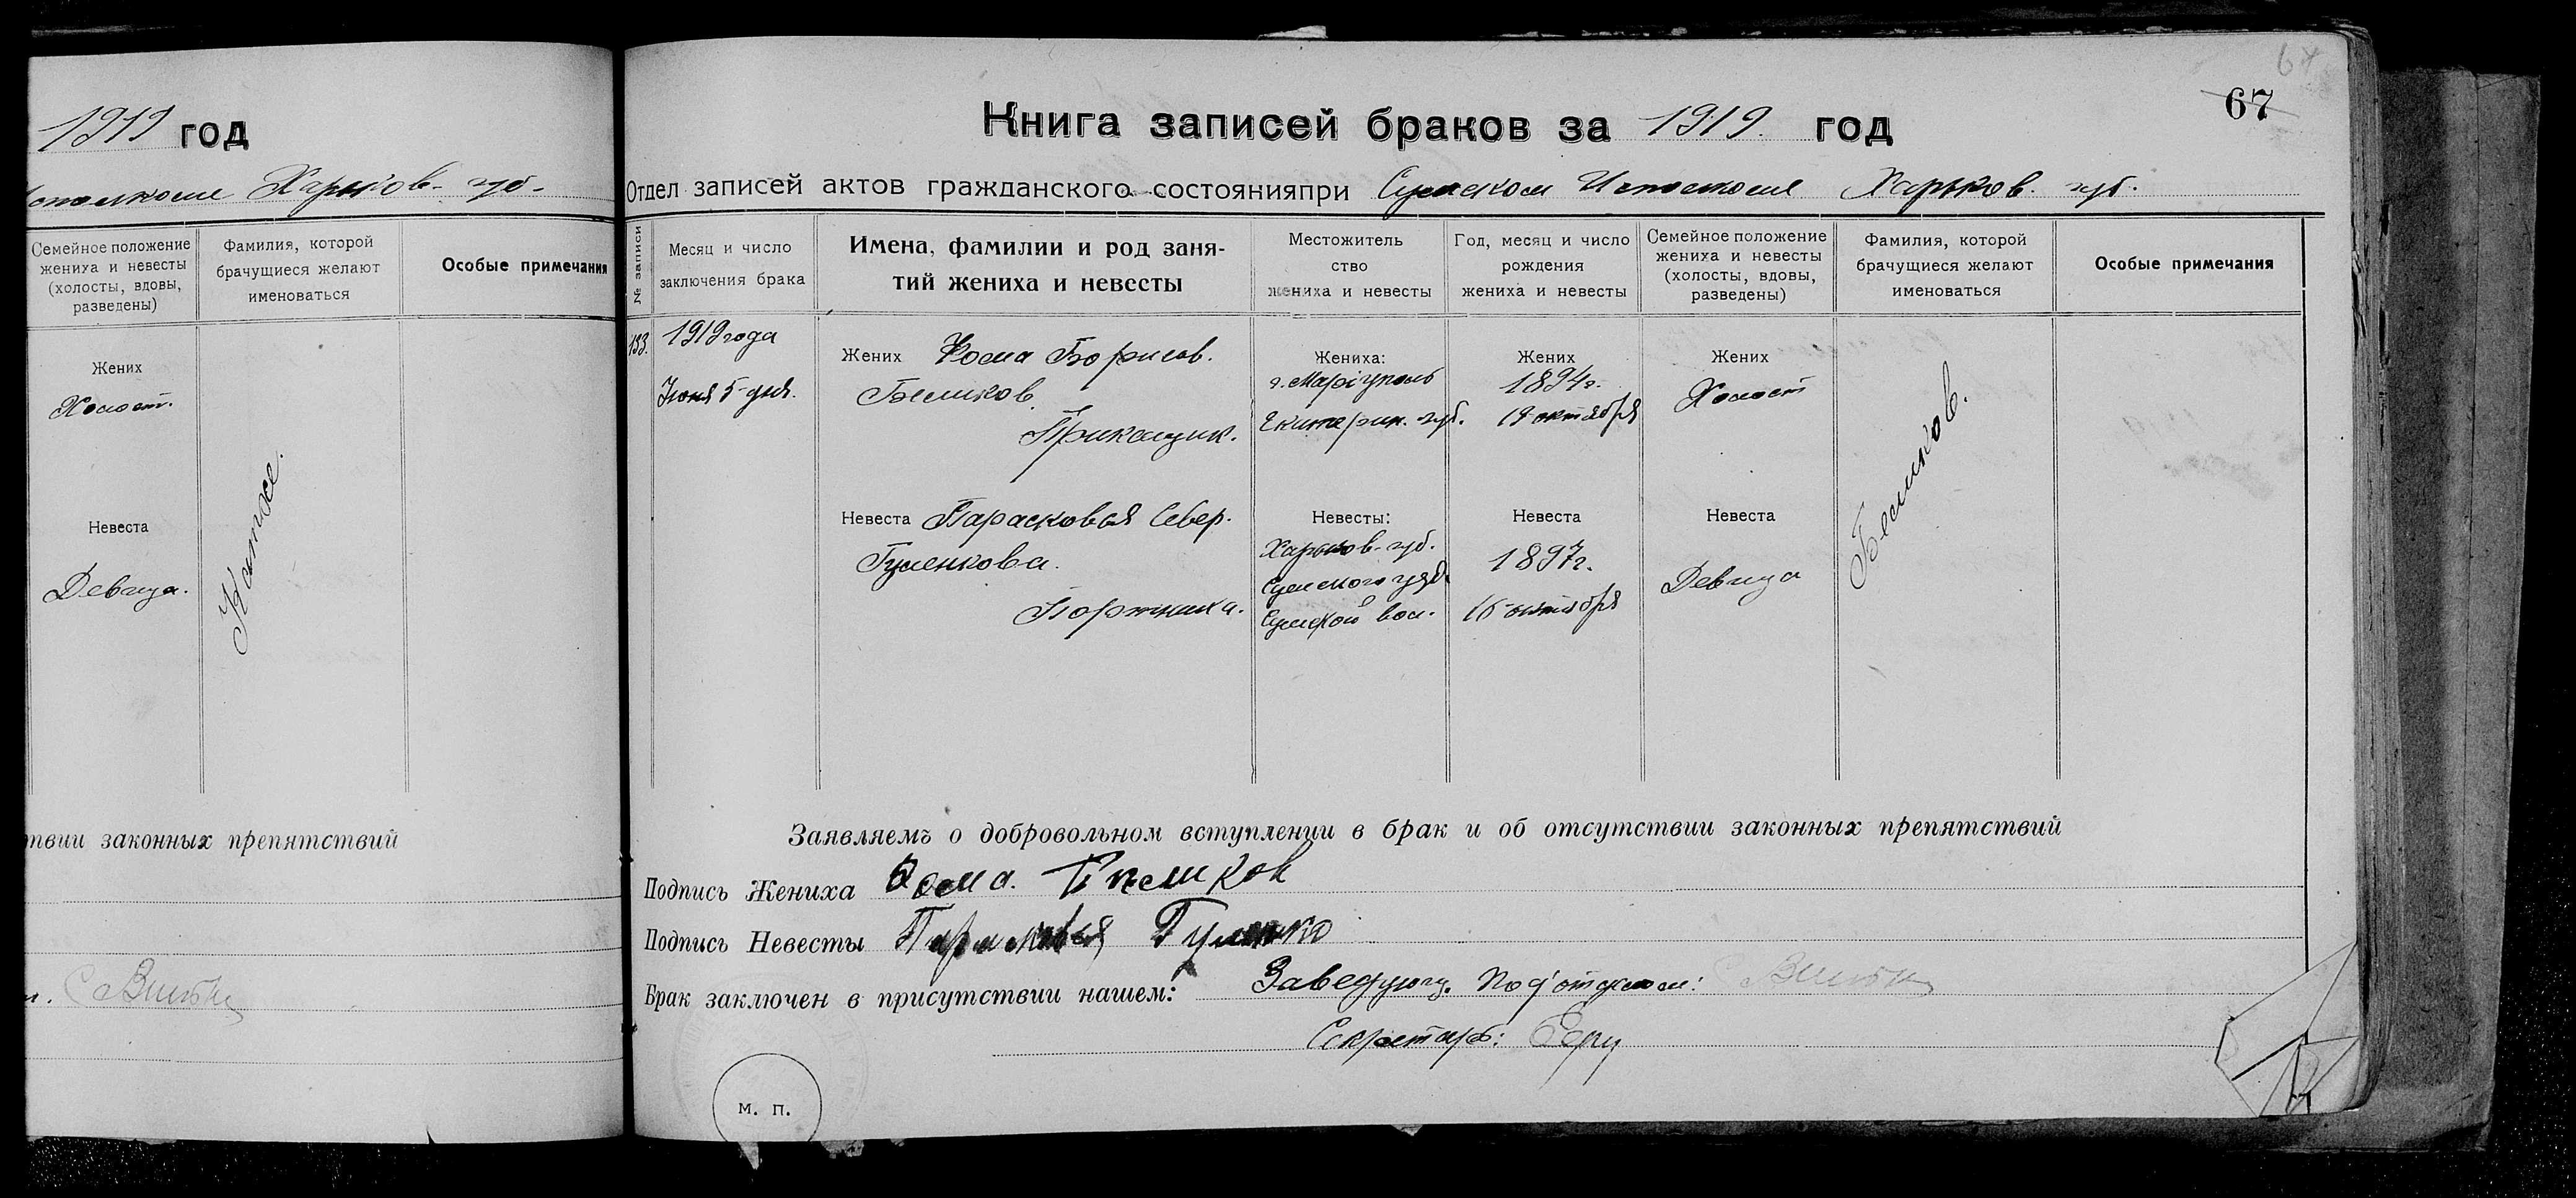 1919 год
Харьков- губ-
Семейное положение
жениха и невесты
(холосты, вдовы,
разведены)
Фамилия, которой
брачущиеся желают
именоваться
Особые примечания
Жених
Холост.
Невеста
Девица.
твии законных препятствий
67
67
Книга записей браков за 1919. год
Отдел записей актов гражданского состоянияпри Сумском Исполкоме Харьков. губ.
№ записи
Месяц и число
заключения брака
Имена, фамилии и род заня-
тий жениха и невесты
Местожитель
ство
жениха и невесты
Год, месяц и число
рождения
жениха и невесты
Семейное положение
жениха и невесты
(холосты, вдовы,
разведены)
Фамилия, которой
брачущиеся желают
именоваться
Особые примечания
133.
1919 года
Июня 5- дня.
Жених Фома Борисов.
Беликов.
Приказчик.
Невеста Парасковья Север.
Гуленкова.
Портниха.
Жениха:
г. Марiуполь
Екатерин. губ.
Невесты:
Харьков- губ.
Сумского уезд.
Сумской вол.
Жених
1894г.
19 октября
Невеста
1897г.
16 октября
Жених
Холост
Невеста
Девица
Беликов.
Заявляемъ о добровольном вступлении в брак и об отсутствии законных препятствий
Подпись Жениха Фома. Беликов
Подпись Невесты Парасковья Гуленко
Брак заключен в присутствии нашем: Заведующ. Под'отделом:
Секретарь:
м. п.